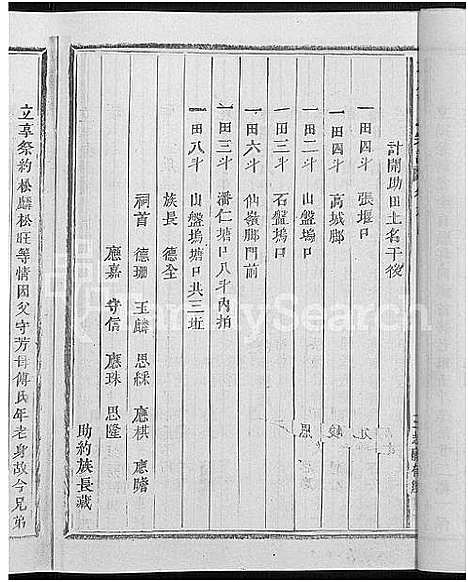 計開助田土名于後
一田四斗 張堰口
一田四斗 高城脚
一田二斗 山盤塢口
一田三斗 石盤塢口
一田六斗 仙嶺脚門前
一田三斗 潘仁塘口八斗內拍
一田八斗 山盤塢塘口共三坵
族長 德全
祠首 德珊 玉麟 思綵 應棋 應瞻
應嘉 守信 應珠 思隆
助約族長藏
立享祭約松麟松旺等情因父守芳母傅氏年老身故今兄弟
FamilySearch